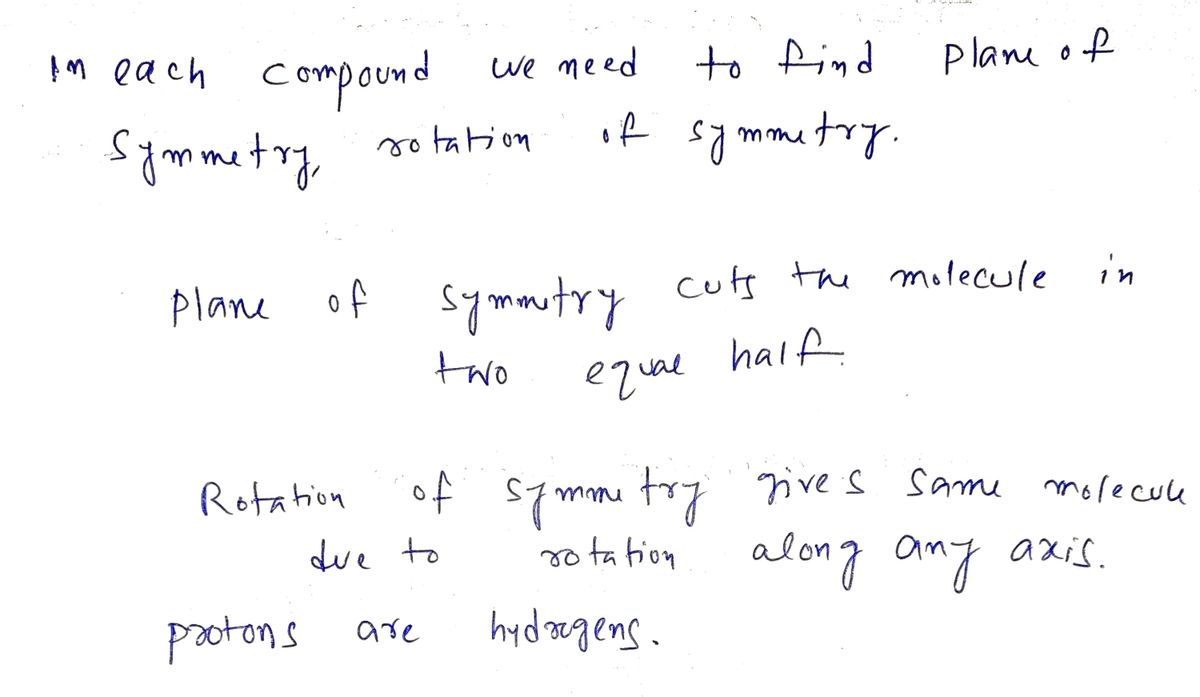 In each compound we need to find plane of
symmetry, rotation of symmetry.
Plane of symmetry cuts the molecule in
two equal half.
Rotation of symmetry gives same molecule
due to rotation along any axis.
protons are hydrogens.